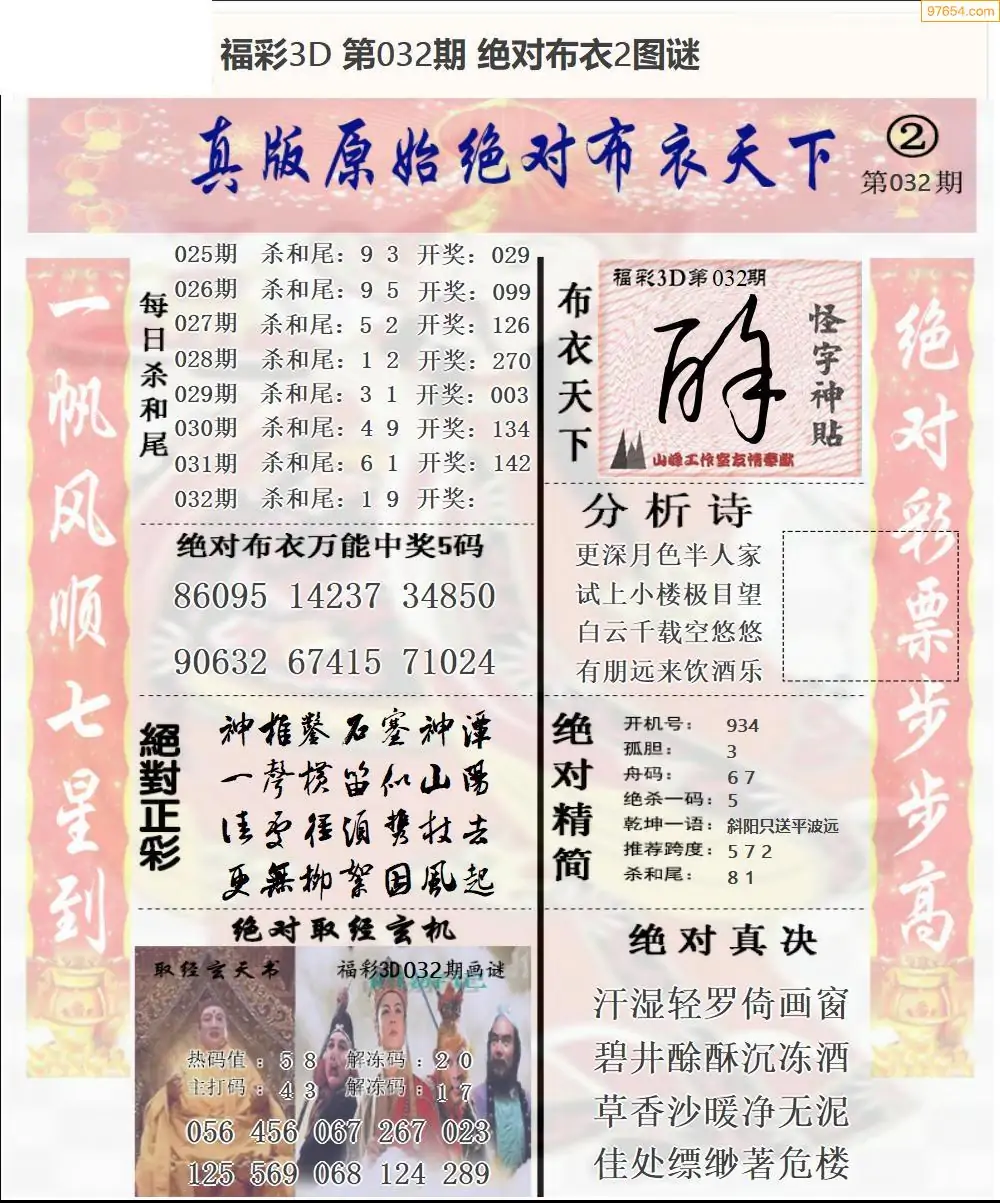 97654.com
福彩3D 第032期 绝对布衣2图谜
真版原始绝对布衣天下
②
第032期
一帆风顺七星到
每日杀和尾
025期 杀和尾：9 3 开奖：029
026期 杀和尾：9 5 开奖：099
027期 杀和尾：5 2 开奖：126
028期 杀和尾：1 2 开奖：270
029期 杀和尾：3 1 开奖：003
030期 杀和尾：4 9 开奖：134
031期 杀和尾：6 1 开奖：142
032期 杀和尾：1 9 开奖：
绝对布衣万能中奖5码
86095 14237 34850
90632 67415 71024
絕對正彩
神椎鑿石塞神潭
一聲橫笛似山陽
佳處徑須攜杖去
更無柳絮因風起
绝对取经玄机
取经玄天书
福彩3D032期画谜
热码值：5 8 解冻码：2 0
主打码：4 3 解冻码：1 7
056 456 067 267 023
125 569 068 124 289
布衣天下
福彩3D第032期
怪字神貼
山峰工作室友情奉献
分析诗
更深月色半人家
试上小楼极目望
白云千载空悠悠
有朋远来饮酒乐
绝对精简
开机号：934
孤胆：3
舟码：6 7
绝杀一码：5
乾坤一语：斜阳只送平波远
推荐跨度：5 7 2
杀和尾：8 1
绝对真决
汗湿轻罗倚画窗
碧井酴酥沉冻酒
草香沙暖净无泥
佳处缥缈著危楼
绝对彩票步步高